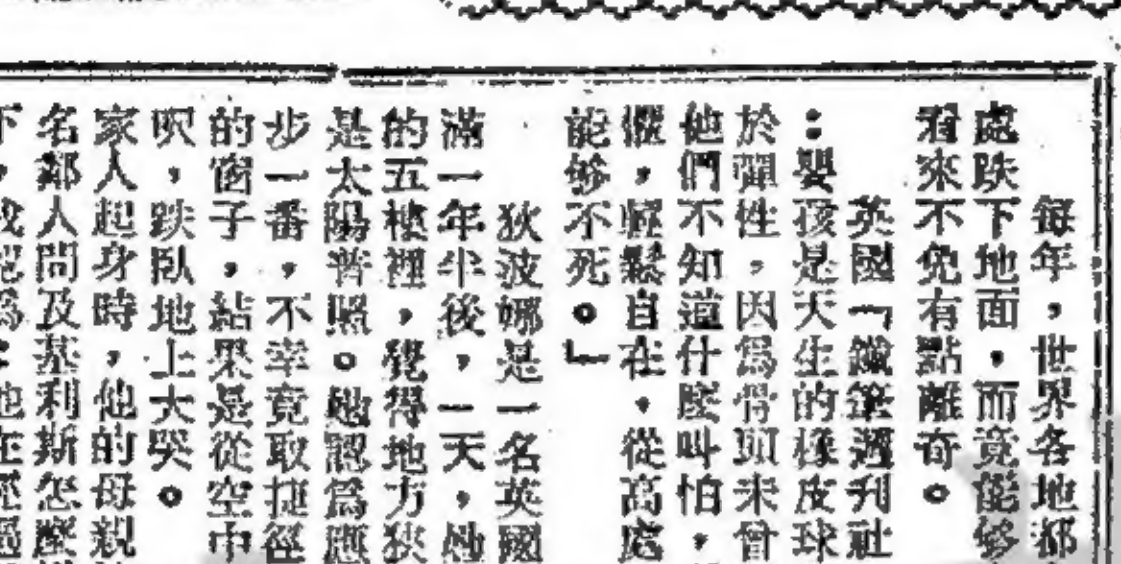 每年，世界各地都
處跌下地面，而竟能够
看來不免有點離奇。
英國「鐵筆週刊社
：嬰孩是天生的橡皮球
於彈性，因爲骨頭未曾
他們不知道什麼叫怕，
懼，輕鬆自在，從高處
能够不死。」
狄波娜是一名英國
滿一年半後，一天，她
的五樓裡，覺得地方狹
是太陽普照。她認爲應
步一番，不幸竟取捷徑
的窗子，結果是從空中
呎，跌臥地上大哭。
家人起身時，他的母親
名鄰人問及基利斯怎麼
下，